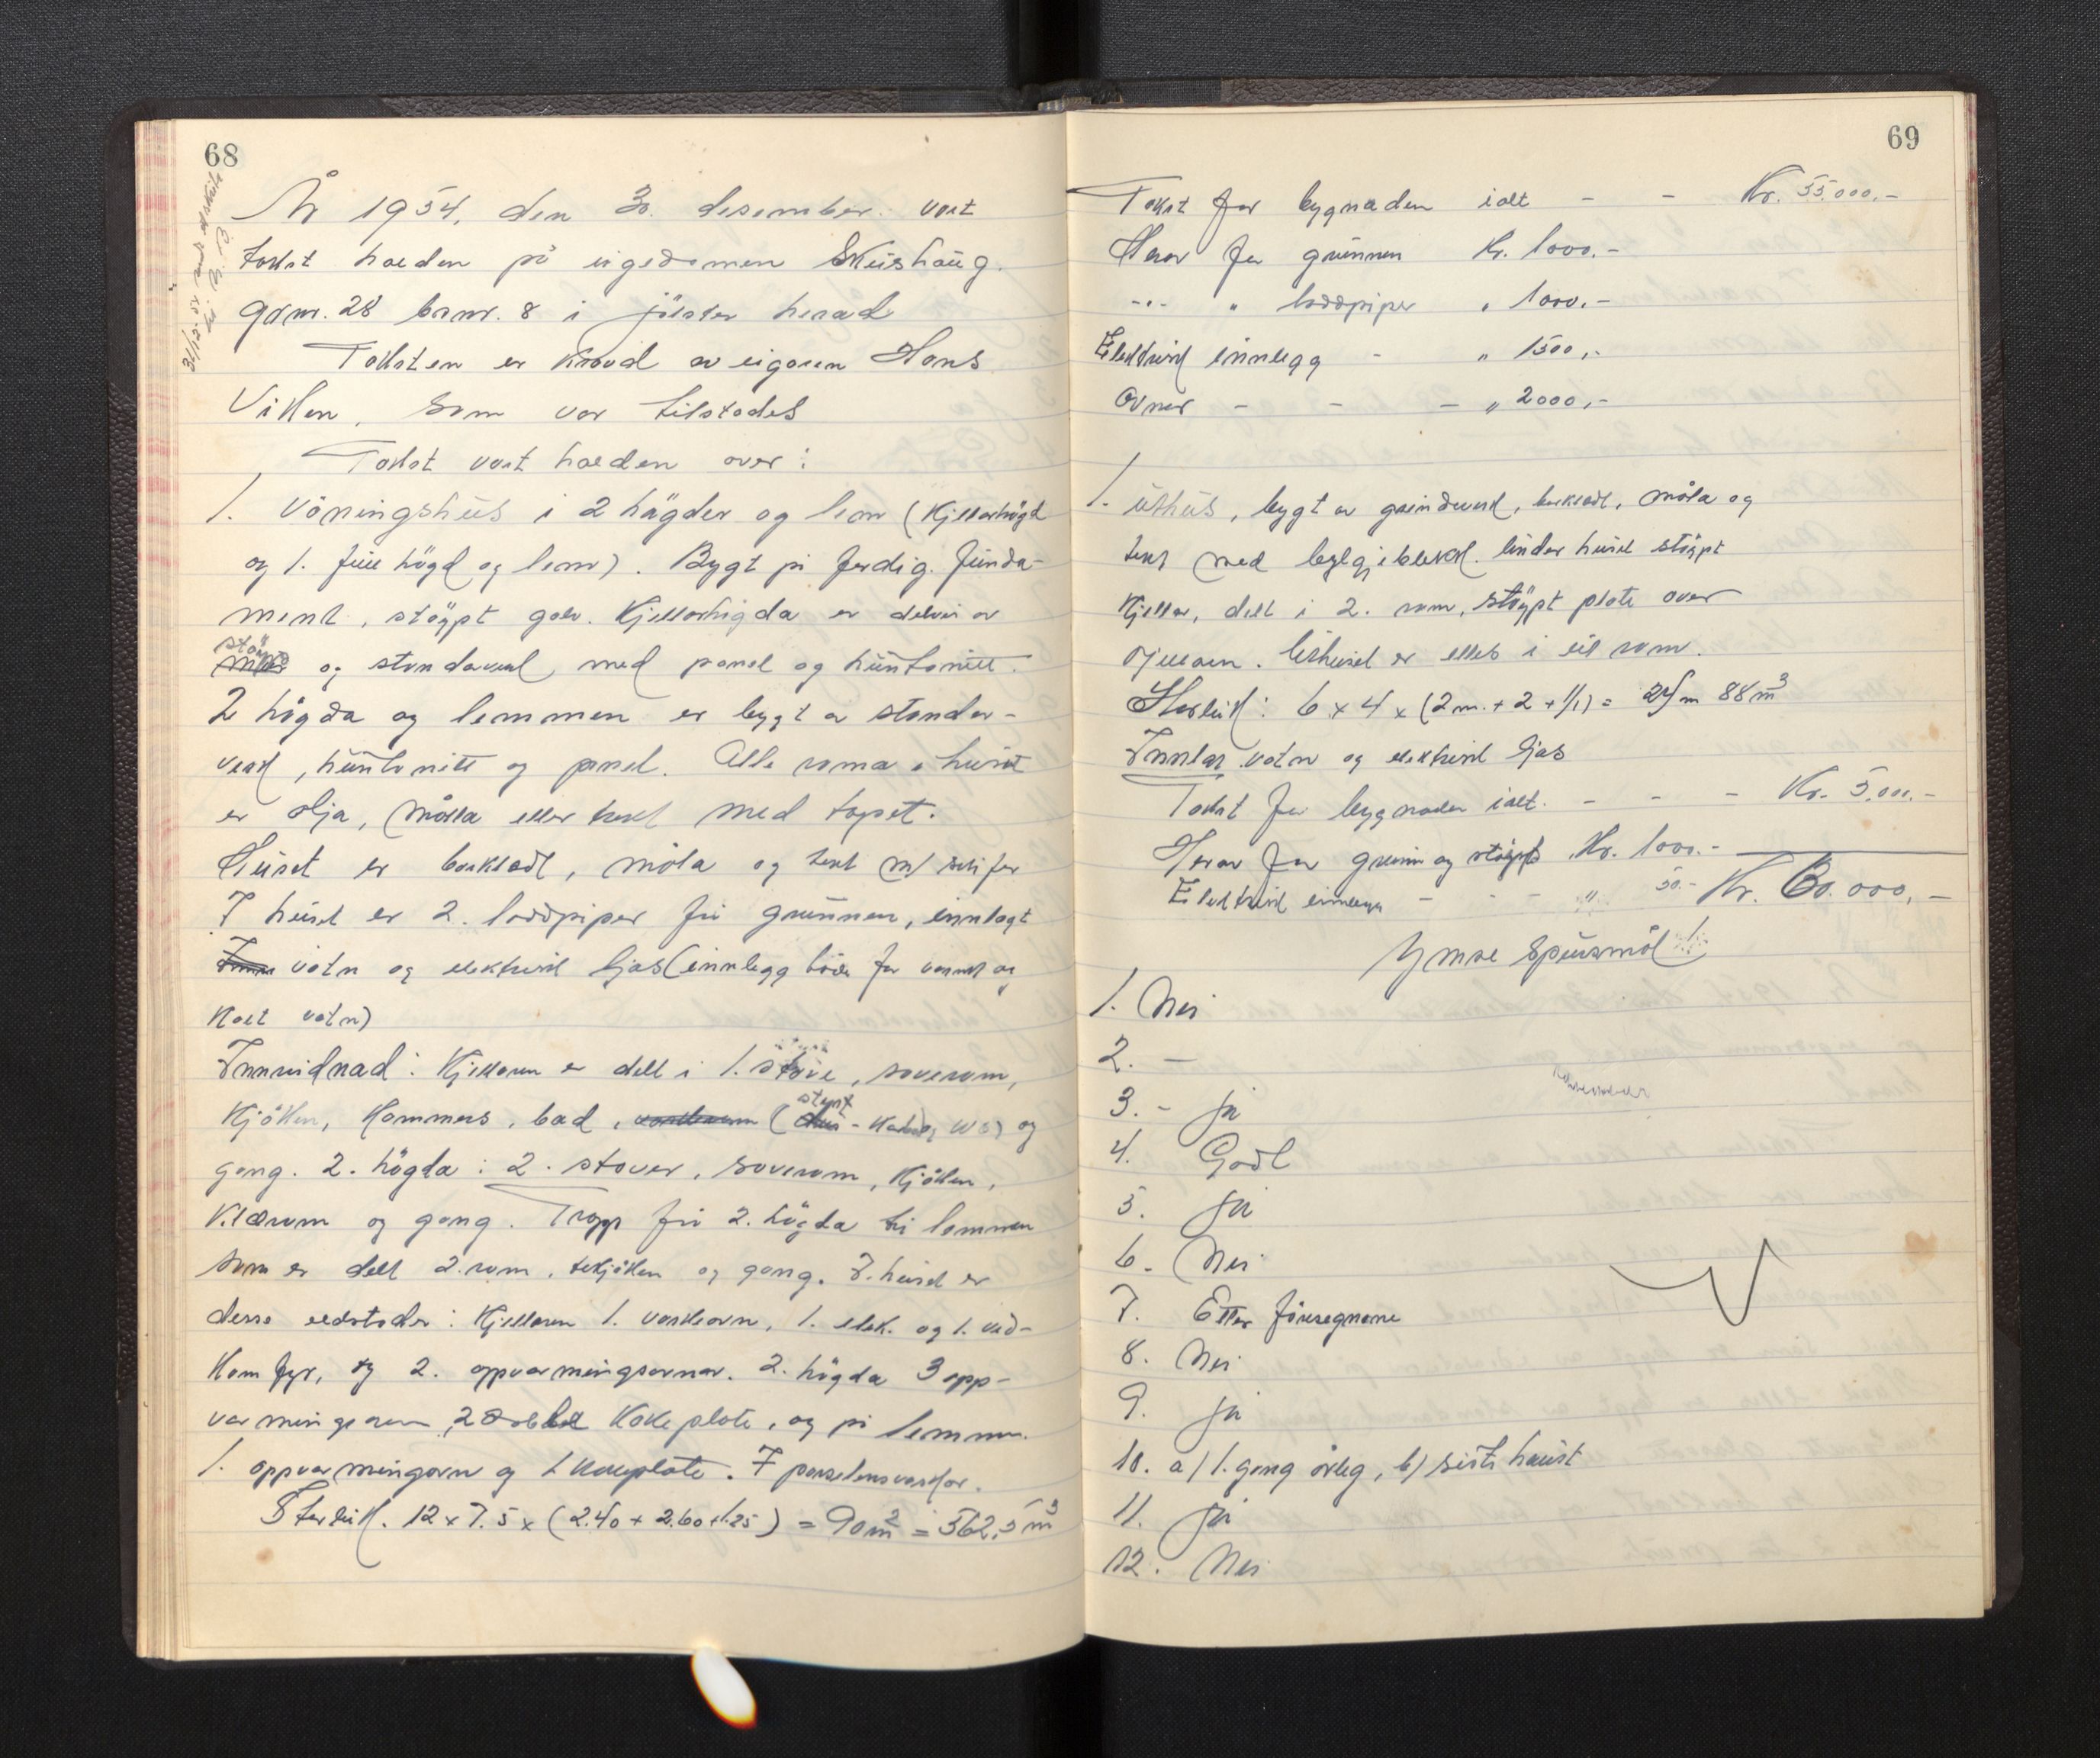 68
År 1954, den 30. desember vart
takst halden på eigedomen Skeishaug.
gdnr. 28 brnr. 8 i Jølster herad
Taksten er kravd av eigaren Hans
Viken, som var tilstades
Takst vart halden over:
1. Våningshus i 2 högder og lem (Kjellarhögd
og 1. full högd og lem). Bygt på ferdig funda-
ment, stöypt golv. Kjellarhögda er delvis av
støyp og standaverk med panel og huntonitt.
2 högda og lemmen er bygt av stander-
verk, huntonitt og panel. Alle roma i huset
er olja, målla eller trekt med tapet.
Huset er bordkledt, måla og tekt m/ skifer
I huset er 2. loddpiper frå grunnen, innlagt
vatn og elektrisk ljos (innlegg både for varmt og
kalt vatn)
Innreidnad: Kjellaren er delt i 1. stove, soverom,
Kjöken, Kammers, bad, (og WC) og
gang. 2. högda: 2. stover, soverom, Kjöken,
Klærom og gang. Trapp frå 2. högda til lemmen
som er delt 2. rom, tekjöken og gang. I huset er
desse eldstader: Kjellaren 1. vaskeovn, 1. elek. og 1. ved-
komfyr, og 2. oppvarmingsovnar. 2. högda 3 opp-
varmingsovnar, 2 Kokeplate, og på lemmen
1. oppvarmingovn og 1 kokeplate. 7 porselensvaskar.
Storleik. 12 x 7.5 x (2.40 + 2.60 + 1.25) = 90 m² = 562,5 m³
69
Takst for bygnaden ialt - - Kr. 55.000,-
Herav for grunnen Kr. 1000.-
-"- " loddpiper " 1000.-
Elektrisk innlegg - " 1500,-
Ovner - - - " 2000,-
1. Uthus, bygt av grindverk, bordkledt, måla og
tekt med bylgjeblekk. Under huset stöypt
Kjellar, delt i 2. rom, stöypt plate over
Kjellaren. Uthuset er elles i eit rom.
Storleik: 6 x 4 x (2 m. + 2 + 1/1) = 24 m 88 m³
Innlag vatn og elektrisk ljos
Takst for bygnaden ialt. - - - Kr. 5.000.-
Herav for grunn og stöypt Kr. 1000.-
Elektrisk innlegg - - - " 50.- Kr. 60.000,-
Ymse Spursmål
1. Nei
2. -
3. - ja
4. Godt
5. ja
6. Nei
7. Etter föresegnene
8. Nei
9. ja
10. a) 1. gang årleg, b) siste haust
11. ja
12. Nei